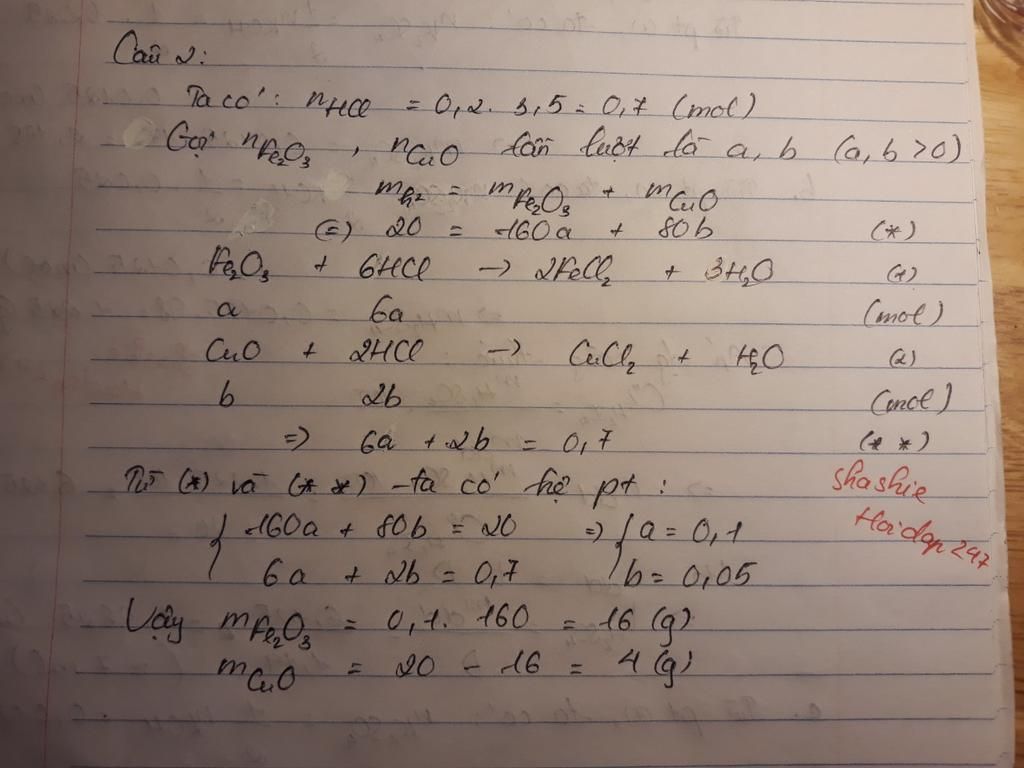 Câu 2:
Ta có: nHCl = 0,2. 3,5 = 0,7 (mol)
Gọi nFe2O3, nCuO lần lượt là a, b (a, b > 0)
mh2 = mFe2O3 + mCuO
(=) 20 = 160a + 80b (*)
Fe2O3 + 6HCl → 2FeCl2 + 3H2O (1)
a 6a (mol)
CuO + 2HCl → CuCl2 + H2O (2)
b 2b (mol)
=> 6a + 2b = 0,7 (* *)
Từ (*) và (* *) ta có hệ pt:
160a + 80b = 20 => { a = 0,1
6a + 2b = 0,7 b = 0,05
Shashie
Hoidap247
Vậy mFe2O3 = 0,1. 160 = 16 (g)
mCuO = 20 - 16 = 4 (g)